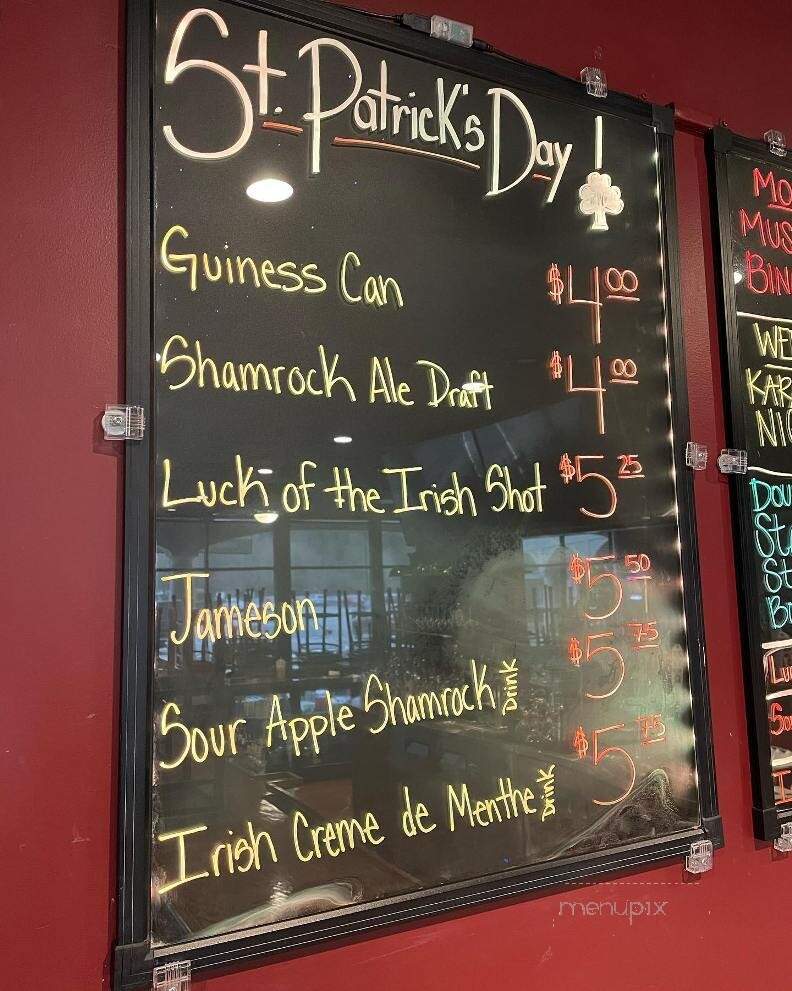 St. Patrick's Day!
Guiness Can $4.00
Shamrock Ale Draft $4.00
Luck of the Irish Shot $5.25
Jameson $5.50
Sour Apple Shamrock Drink $5.75
Irish Creme de Menthe Drink $5.75
MO
MUS
BIN
WE
KAR
NIG
DOU
St
St
B
Lu
So
I
menupix